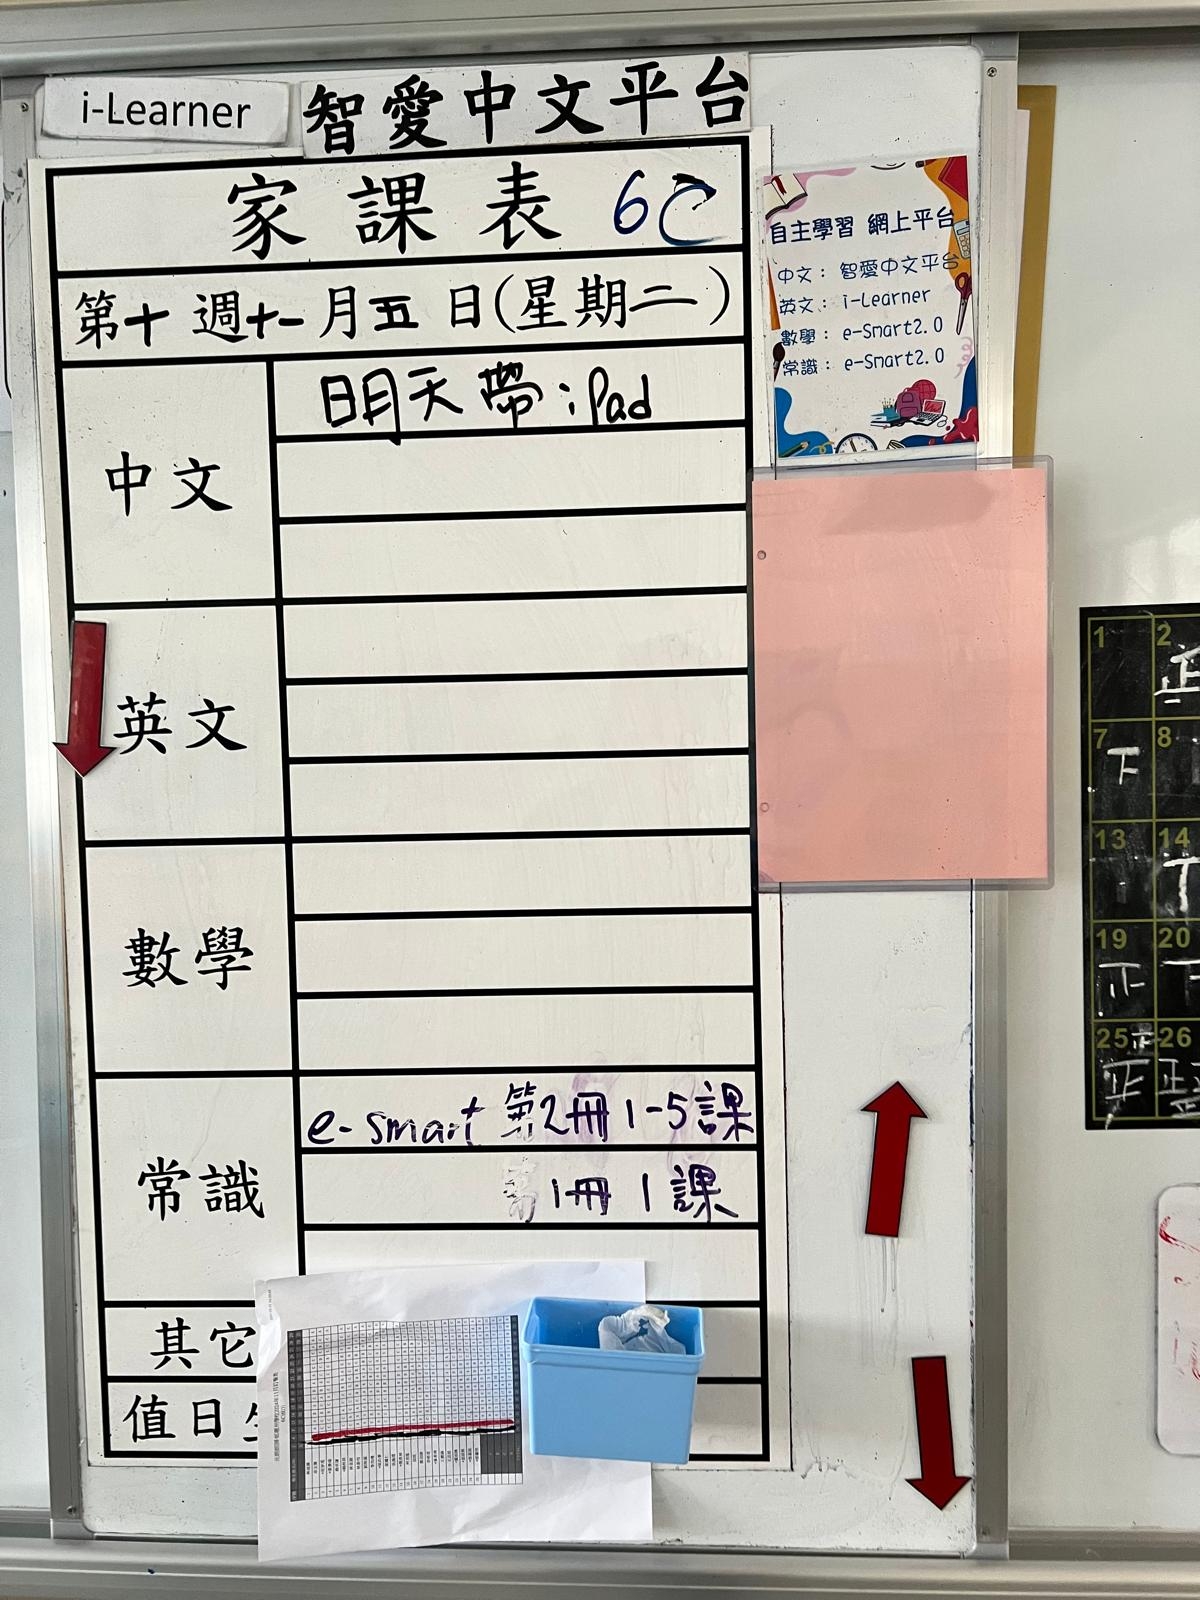 i-Learner 智愛中文平台
家課表 6C
第十週十一月五日(星期二)
中文
明天帶iPad
英文
數學
常識
e-smart 第2冊 1-5課
第1冊 1課
其它
值日生
自主學習 網上平台
中文：智愛中文平台
英文：i-Learner
數學：e-Smart2.0
常識：e-Smart2.0
1 2
正
7 8
下
13 14
19 20
正 下
25 26
正